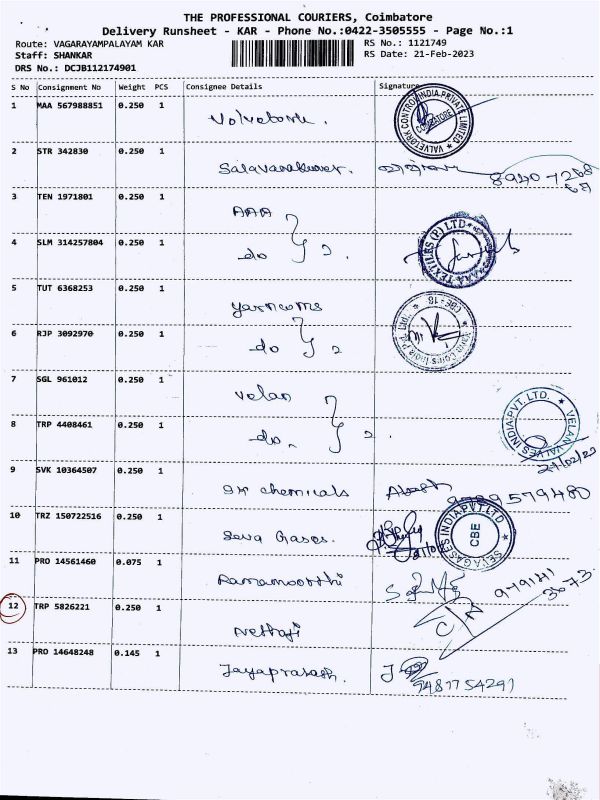 THE PROFESSIONAL COURIERS, Coimbatore
Delivery Runsheet - KAR - Phone No.:0422-3505555 - Page No.:1
Route: VAGARAYAMPALAYAM KAR RS No.: 1121749
Staff: SHANKAR RS Date: 21-Feb-2023
DRS No.: DCJB112174901
S No Consignment No Weight PCS Consignee Details Signature
1 MAA 567988851 0.250 1 VALVETORK CONTROL INDIA PRIVATE LIMITED COIMBATORE
2 STR 342830 0.250 1 89407268
3 TEN 1971801 0.250 1 AAA
4 SLM 314257804 0.250 1 do 2. AAA TEXTILES (P) LTD
5 TUT 6368253 0.250 1
6 RJP 3092970 0.250 1 do 2 Yarn Coms India Pvt. Ltd. CBE-18
7 SGL 961012 0.250 1 Velan
8 TRP 4408461 0.250 1 do 2. VELAN VALVES INDIA PVT. LTD.
21/02/23
9 SVK 10364507 0.250 1 chemicals 9789579480
10 TRZ 150722516 0.250 1 Seva Gases. SEVA GASES INDIA PVT LTD CBE
11 PRO 14561460 0.075 1 Ramamoorthi
12 TRP 5826221 0.250 1 Nethaji
13 PRO 14648248 0.145 1 Jayaprakash. 9487754291